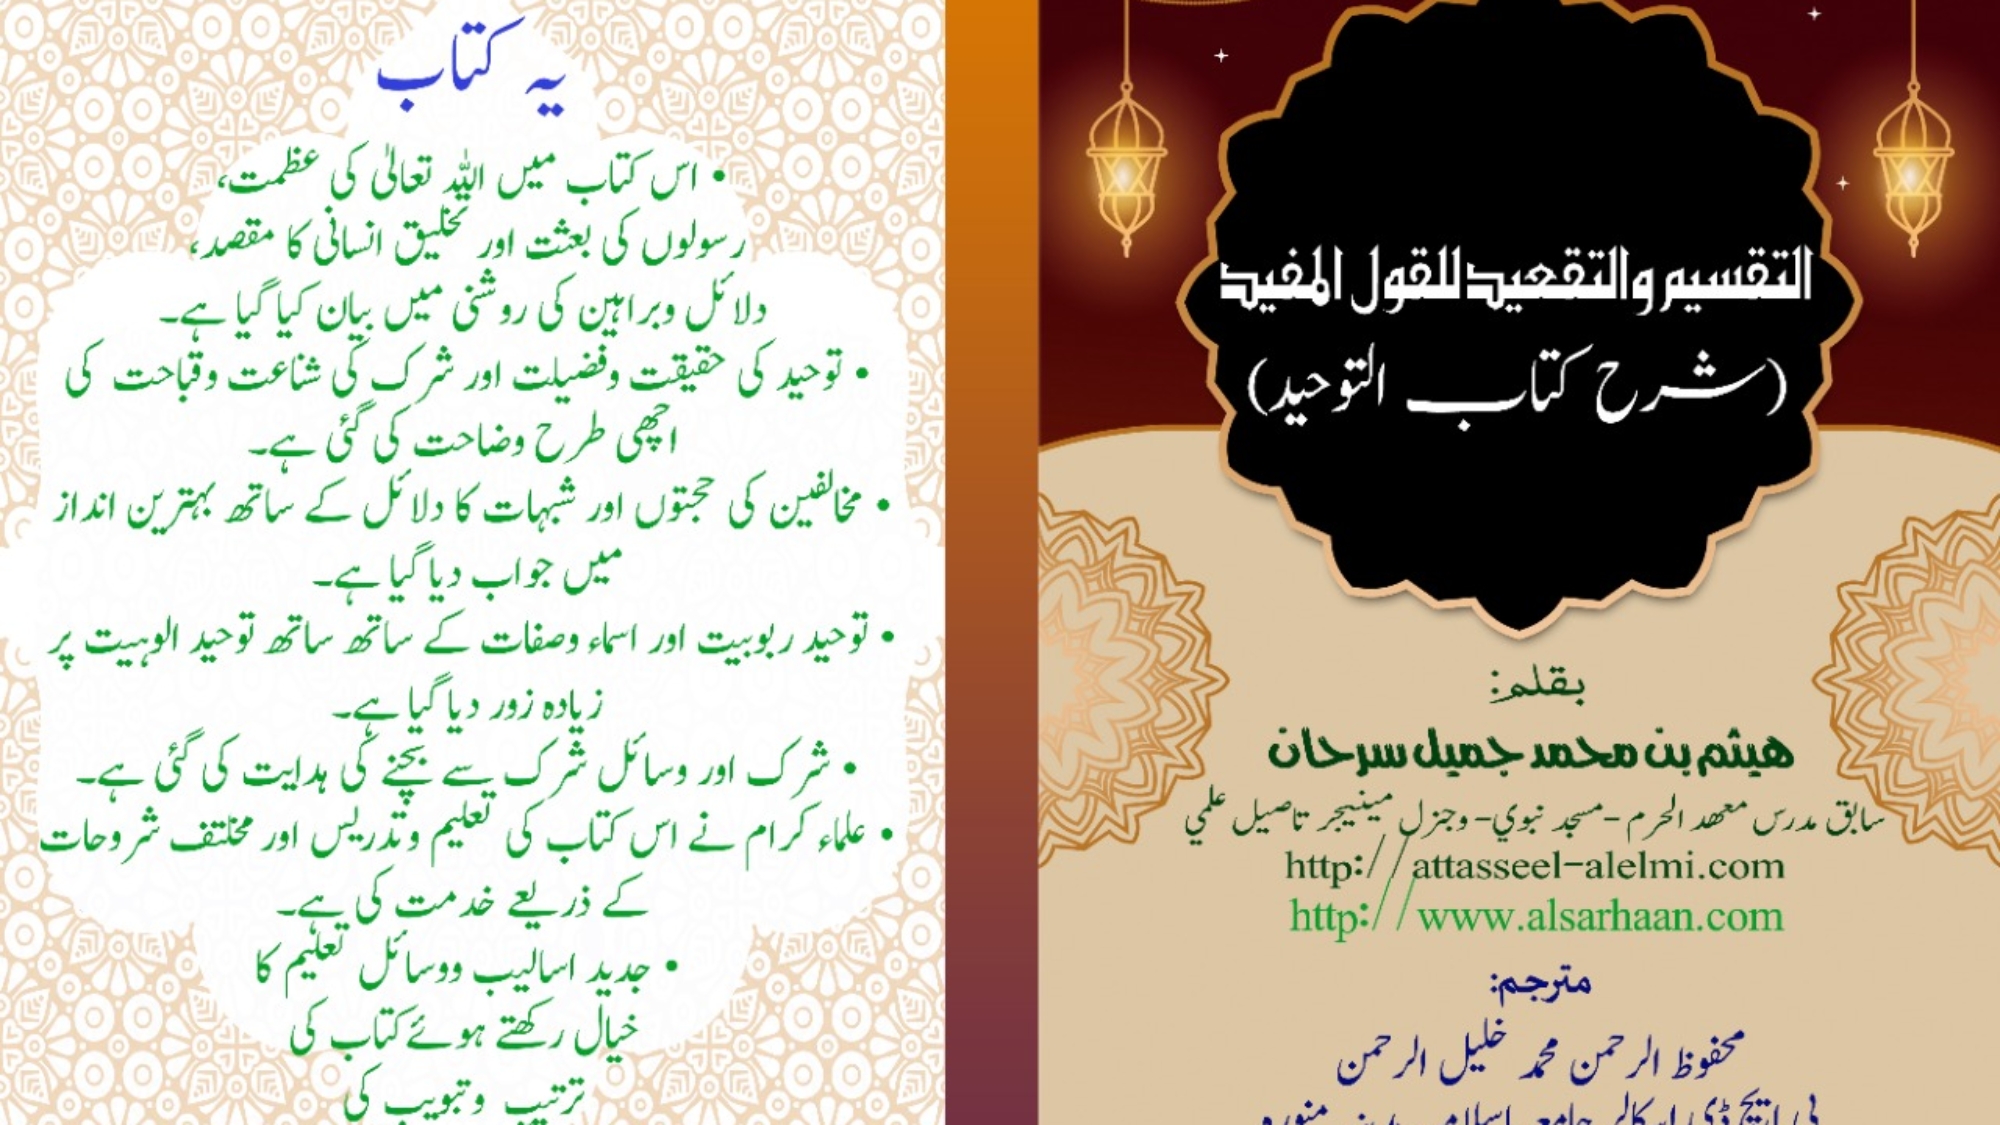 یہ کتاب
• اس کتاب میں اللہ تعالیٰ کی عظمت،
رسولوں کی بعثت اور تخلیق انسانی کا مقصد،
دلائل وبراہین کی روشنی میں بیان کیا گیا ہے۔
• توحید کی حقیقت وفضیلت اور شرک کی شناعت وقباحت کی
اچھی طرح وضاحت کی گئی ہے۔
• مخالفین کی حجتوں اور شبہات کا دلائل کے ساتھ بہترین انداز
میں جواب دیا گیا ہے۔
• توحید ربوبیت اور اسماء وصفات کے ساتھ ساتھ توحید الوہیت پر
زیادہ زور دیا گیا ہے۔
• شرک اور وسائل شرک سے بچنے کی ہدایت کی گئی ہے۔
• علماء کرام نے اس کتاب کی تعلیم وتدریس اور مختلف شروحات
کے ذریعے خدمت کی ہے۔
• جدید اسالیب ووسائل تعلیم کا
خیال رکھتے ہوئے کتاب کی
ترتیب وتبویب کی
التقسيم والتقعيد للقول المفيد
(شرح كتاب التوحيد)
بقلم:
هيثم بن محمد جميل سرحان
سابق مدرس معهد الحرم -مسجد نبوي- وجنرل مینیجر تاصیل علمي
http://attasseel-alelmi.com
http://www.alsarhaan.com
مترجم:
محفوظ الرحمن محمد خلیل الرحمن
پی ایچ ڈی اسکالر جامعہ اسلامیہ مدینہ منورہ